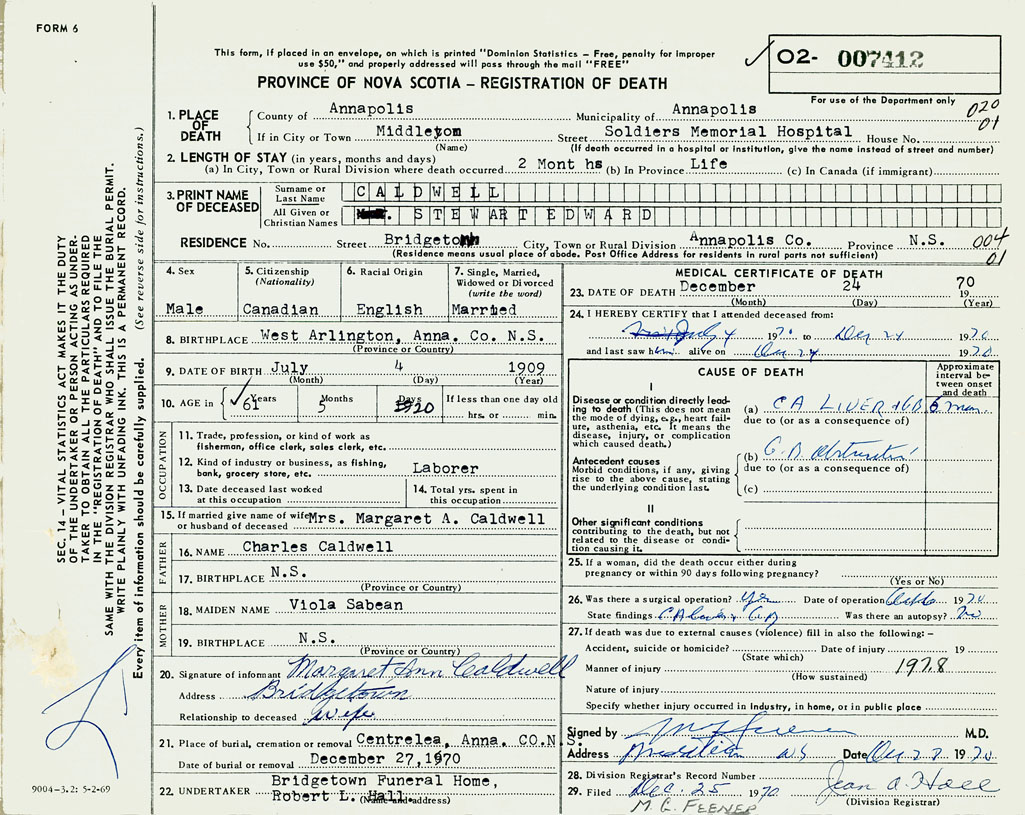 FORM 6
This form, if placed in an envelope, on which is printed "Dominion Statistics – Free, penalty for improper
use $50," and properly addressed will pass through the mail "FREE"
02- 007412
PROVINCE OF NOVA SCOTIA – REGISTRATION OF DEATH
For use of the Department only
020
01
1. PLACE OF DEATH
County of Annapolis Municipality of Annapolis
If in City or Town Middleton Street Soldiers Memorial Hospital House No.
(Name) (If death occurred in a hospital or institution, give the name instead of street and number)
2. LENGTH OF STAY (in years, months and days)
(a) In City, Town or Rural Division where death occurred 2 Mont hs (b) In Province Life (c) In Canada (if immigrant)
3. PRINT NAME OF DECEASED
Surname or Last Name CALDWELL
All Given or Christian Names STEWART EDWARD
RESIDENCE No. Street Bridgetown City, Town or Rural Division Annapolis Co. Province N.S. 004
(Residence means usual place of abode. Post Office Address for residents in rural parts not sufficient) 01
4. Sex
Male
5. Citizenship
(Nationality)
Canadian
6. Racial Origin
English
7. Single, Married,
Widowed or Divorced
(write the word)
Married
8. BIRTHPLACE West Arlington, Anna. Co. N.S.
(Province or Country)
9. DATE OF BIRTH July 4 1909
(Month) (Day) (Year)
10. AGE in Years Months Days If less than one day old
61 5 20 hrs. or min.
OCCUPATION
11. Trade, profession, or kind of work as
fisherman, office clerk, sales clerk, etc.
12. Kind of industry or business, as fishing,
bank, grocery store, etc. Laborer
13. Date deceased last worked
at this occupation
14. Total yrs. spent in
this occupation
15. If married give name of wife Mrs. Margaret A. Caldwell
or husband of deceased
FATHER
16. NAME Charles Caldwell
17. BIRTHPLACE N.S.
(Province or Country)
MOTHER
18. MAIDEN NAME Viola Sabean
19. BIRTHPLACE N.S.
(Province or Country)
20. Signature of informant Margaret Ann Caldwell
Address Bridgetown
Relationship to deceased wife
21. Place of burial, cremation or removal Centrelea, Anna. CO.N.S.
Date of burial or removal December 27,1970
22. UNDERTAKER Bridgetown Funeral Home,
Robert L. Hall
(Name and address)
MEDICAL CERTIFICATE OF DEATH
23. DATE OF DEATH December 24 1970
(Month) (Day) (Year)
24. I HEREBY CERTIFY that I attended deceased from:
July 4 1970 to Dec 24 1970
and last saw him alive on Dec 24 1970
CAUSE OF DEATH
Approximate
interval be-
tween onset
and death
I
Disease or condition directly lead-
ing to death (This does not mean
the mode of dying, e.g., heart fail-
ure, asthenia, etc. It means the
disease, injury, or complication
which caused death.)
(a) CA LIVER + GB 6 mon.
due to (or as a consequence of)
Antecedent causes
Morbid conditions, if any, giving
rise to the above cause, stating
the underlying condition last.
(b) G.B. Obstruction
due to (or as a consequence of)
(c)
II
Other significant conditions
contributing to the death, but not
related to the disease or condi-
tion causing it.
25. If a woman, did the death occur either during
pregnancy or within 90 days following pregnancy?
(Yes or No)
26. Was there a surgical operation? yes Date of operation 1970
State findings CA Liver + GB Was there an autopsy? No
27. If death was due to external causes (violence) fill in also the following: –
Accident, suicide or homicide? Date of injury 19
(State which)
Manner of injury 197.8
(How sustained)
Nature of injury
Specify whether injury occurred in Industry, in home, or in public place
Signed by M.D.
Address N S Date Dec 27 1970
28. Division Registrar's Record Number
29. Filed Dec. 25 1970 Jean A. Hall
(Division Registrar)
M. G. FEENER
SEC. 14 – VITAL STATISTICS ACT MAKES IT THE DUTY
OF THE UNDERTAKER OR PERSON ACTING AS UNDER-
TAKER TO OBTAIN ALL THE PARTICULARS REQUIRED
IN THE "REGISTRATION OF DEATH" AND TO FILE THE
SAME WITH THE DIVISION REGISTRAR WHO SHALL ISSUE THE BURIAL PERMIT.
WRITE PLAINLY WITH UNFADING INK. THIS IS A PERMANENT RECORD.
Every item of information should be carefully supplied. (See reverse side for instructions.)
9004-3.2: 5-2-69